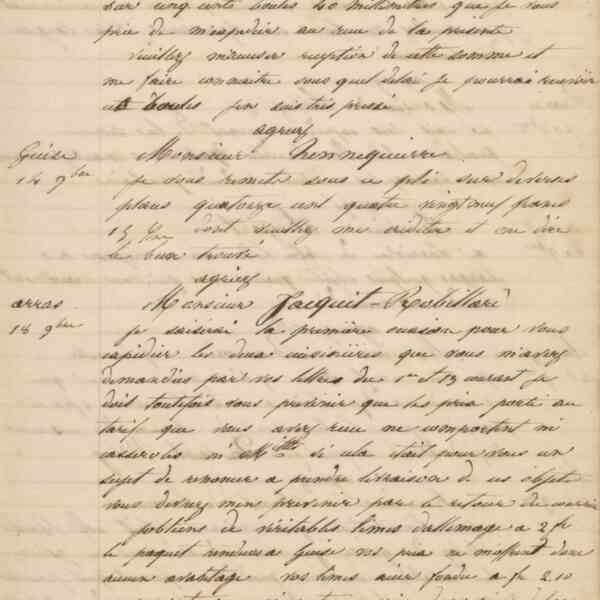 sur cinq cents boules 40 millimètres que je vous
prie de m'expédier au reçu de la présente
Veuillez m'accuser reception de cette somme et
me faire connaitre sous quel délai je pourrai recevoir
ces boules j'en suis très pressé
agreez
Guise
14 9bre
Monsieur Hennequierre
je vous remets sous ce pli sur diverses
places quatorze cent quatre vingt neuf francs
15 dont veuillez me créditer et me dire
le bien trouvé
agreez
arras
18 9bre
Monsieur Jacquit-Robillard
je saisirai la première occasion pour vous
expédier les deux cuisinières que vous m'avez
demandées par vos lettres du 1er et 13 courant je
dois toutefois vous prévenir que les prix porté au
tarif que vous avez reçu ne comportent ni
casseroles ni si cela était pour vous un
sujet de renoncer a prendre livraison de ces objets
vous devrez m'en prévenir par le retour du courrier
j'obtiens de véritables limes d'allemagne a 2 fr
le paquet rendues a Guise vos prix ne m'offrent donc
aucun avantage vos limes acier fondu a fr 2.10